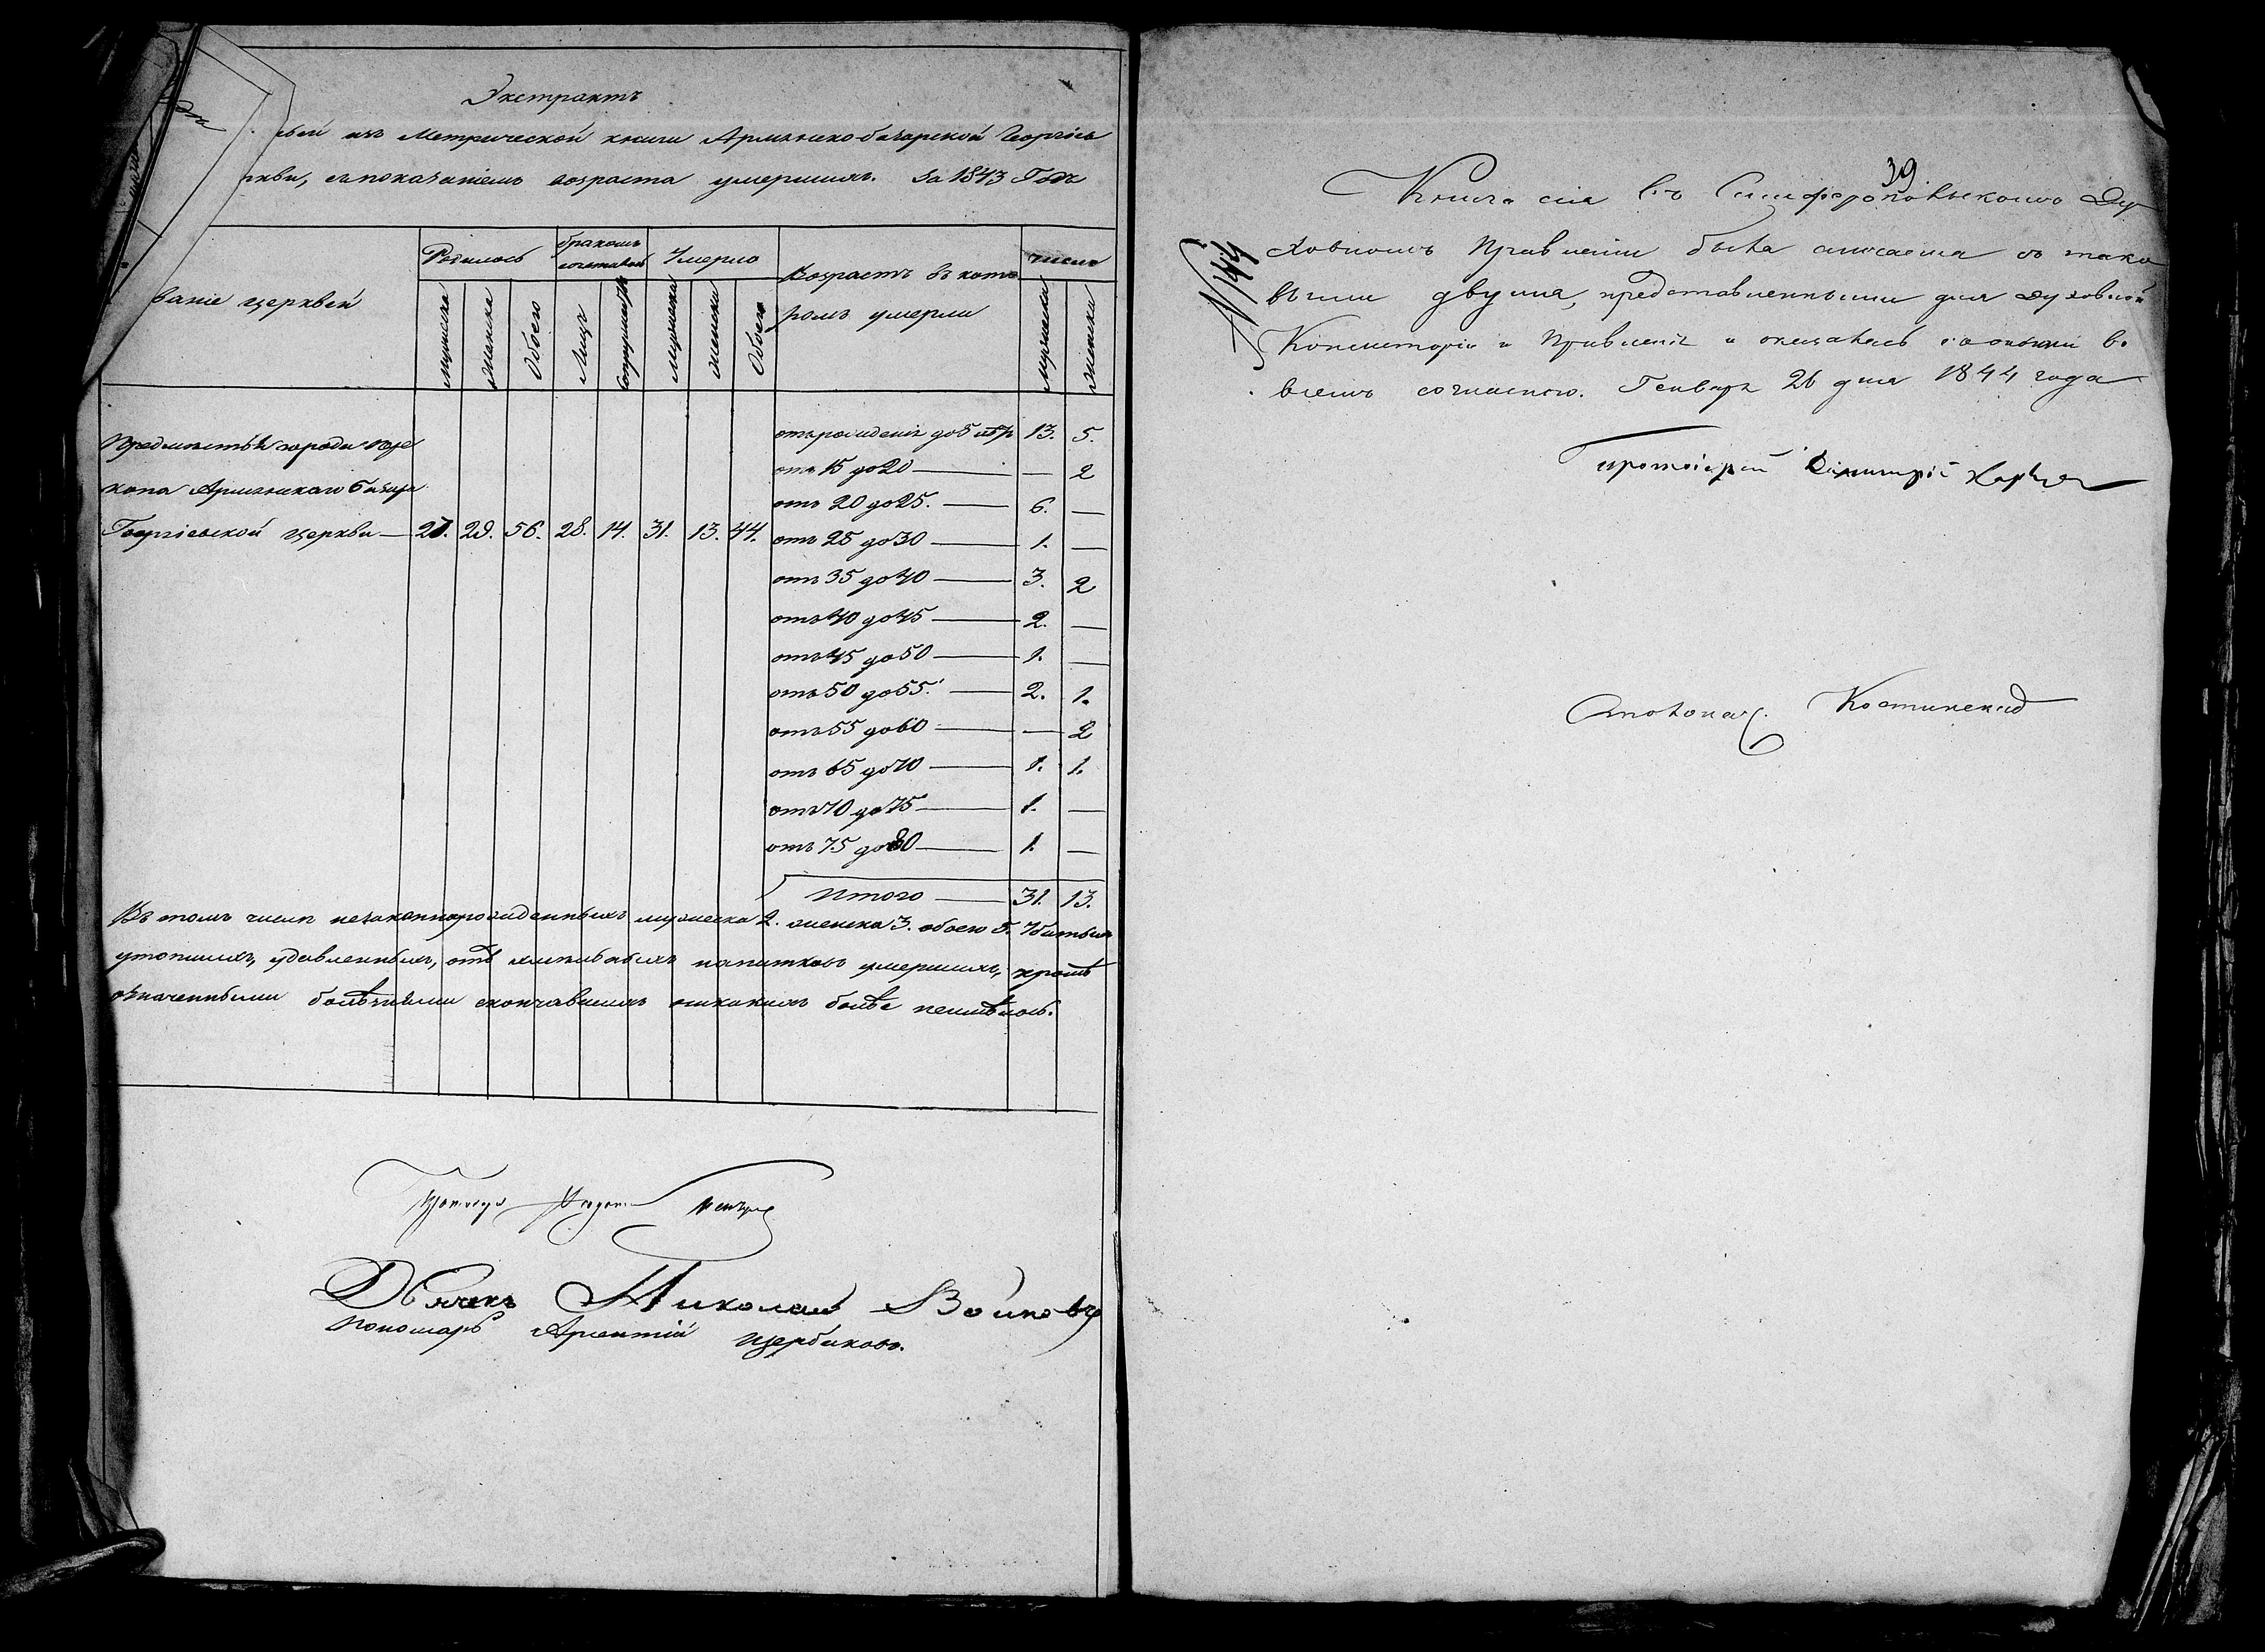 Экстрактъ
изъ Метрической книги Армянско-базарской Георгіев
ркви, съ показаніемъ возраста умершихъ. За 1843 Годъ
ваніе церквей
Родилось
бракомъ сочеталось
Умерло
Возрастъ въ кото
ромъ умерли
число
мужеска
женска
Обоего
Лицъ
Супружествъ
мужеска
женска
Обоего
мужеска
женска
Предмѣстья города Пере
копа Армянскаго базара
Георгіевской церкви — 27. 29. 56. 28. 14. 31. 13. 44.
отъ рожденія до 5 лѣтъ 13. 5.
отъ 15 до 20 — — 2
отъ 20 до 25. — 6. —
отъ 25 до 30 — 1. —
отъ 35 до 40 — 3. 2
отъ 40 до 45 — 2. —
отъ 45 до 50 — 1. —
отъ 50 до 55. — 2. 1.
отъ 55 до 60 — — 2
отъ 65 до 70 — 1. 1.
отъ 70 до 75 — 1. —
отъ 75 до 80 — 1. —
Итого — 31. 13.
Въ томъ числѣ незаконнорожденныхъ мужеска 2. женска 3. обоего 5. Убитыхъ
утопшихъ, удавленныхъ, отъ хмѣльныхъ напитковъ умершихъ, кромѣ
означенными болѣзнями скончавшихъ никакихъ болѣе неимѣлось.
Дьячекъ Николай Войновъ
Пономарь Арсентій Щербаковъ.
39
Книга сія въ Симферопольскомъ Ду
ховномъ Правленіи была сличаема съ тако
выми двумя, представленными для духовной
Консисторіи и Правленія и оказалась съ оными во
всемъ согласною. Генваря 26 дня 1844 года
№ 144
Протоіерей Димитрій
Столонач. Костинскій